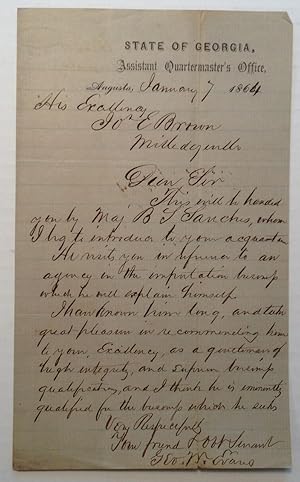 STATE OF GEORGIA,
Assistant Quartermaster's Office,
Augusta, January 7 1864
His Excellency
Jos E Brown
Milledgeville
Dear Sir
This will be handed
you by Maj B S Sanches, whom
I beg to introduce to your acquaintance
He visits you in reference to an
agency in the importation business
which he will explain himself.
I have known him long, and take
great pleasure in recommending him
to your Excellency, as a gentleman of
high integrity, and superior business
qualifications, and I think he is eminently
qualified for the business which he seeks
Very Respectfully
Your friend & Obt Servant
Geo. W. Evans